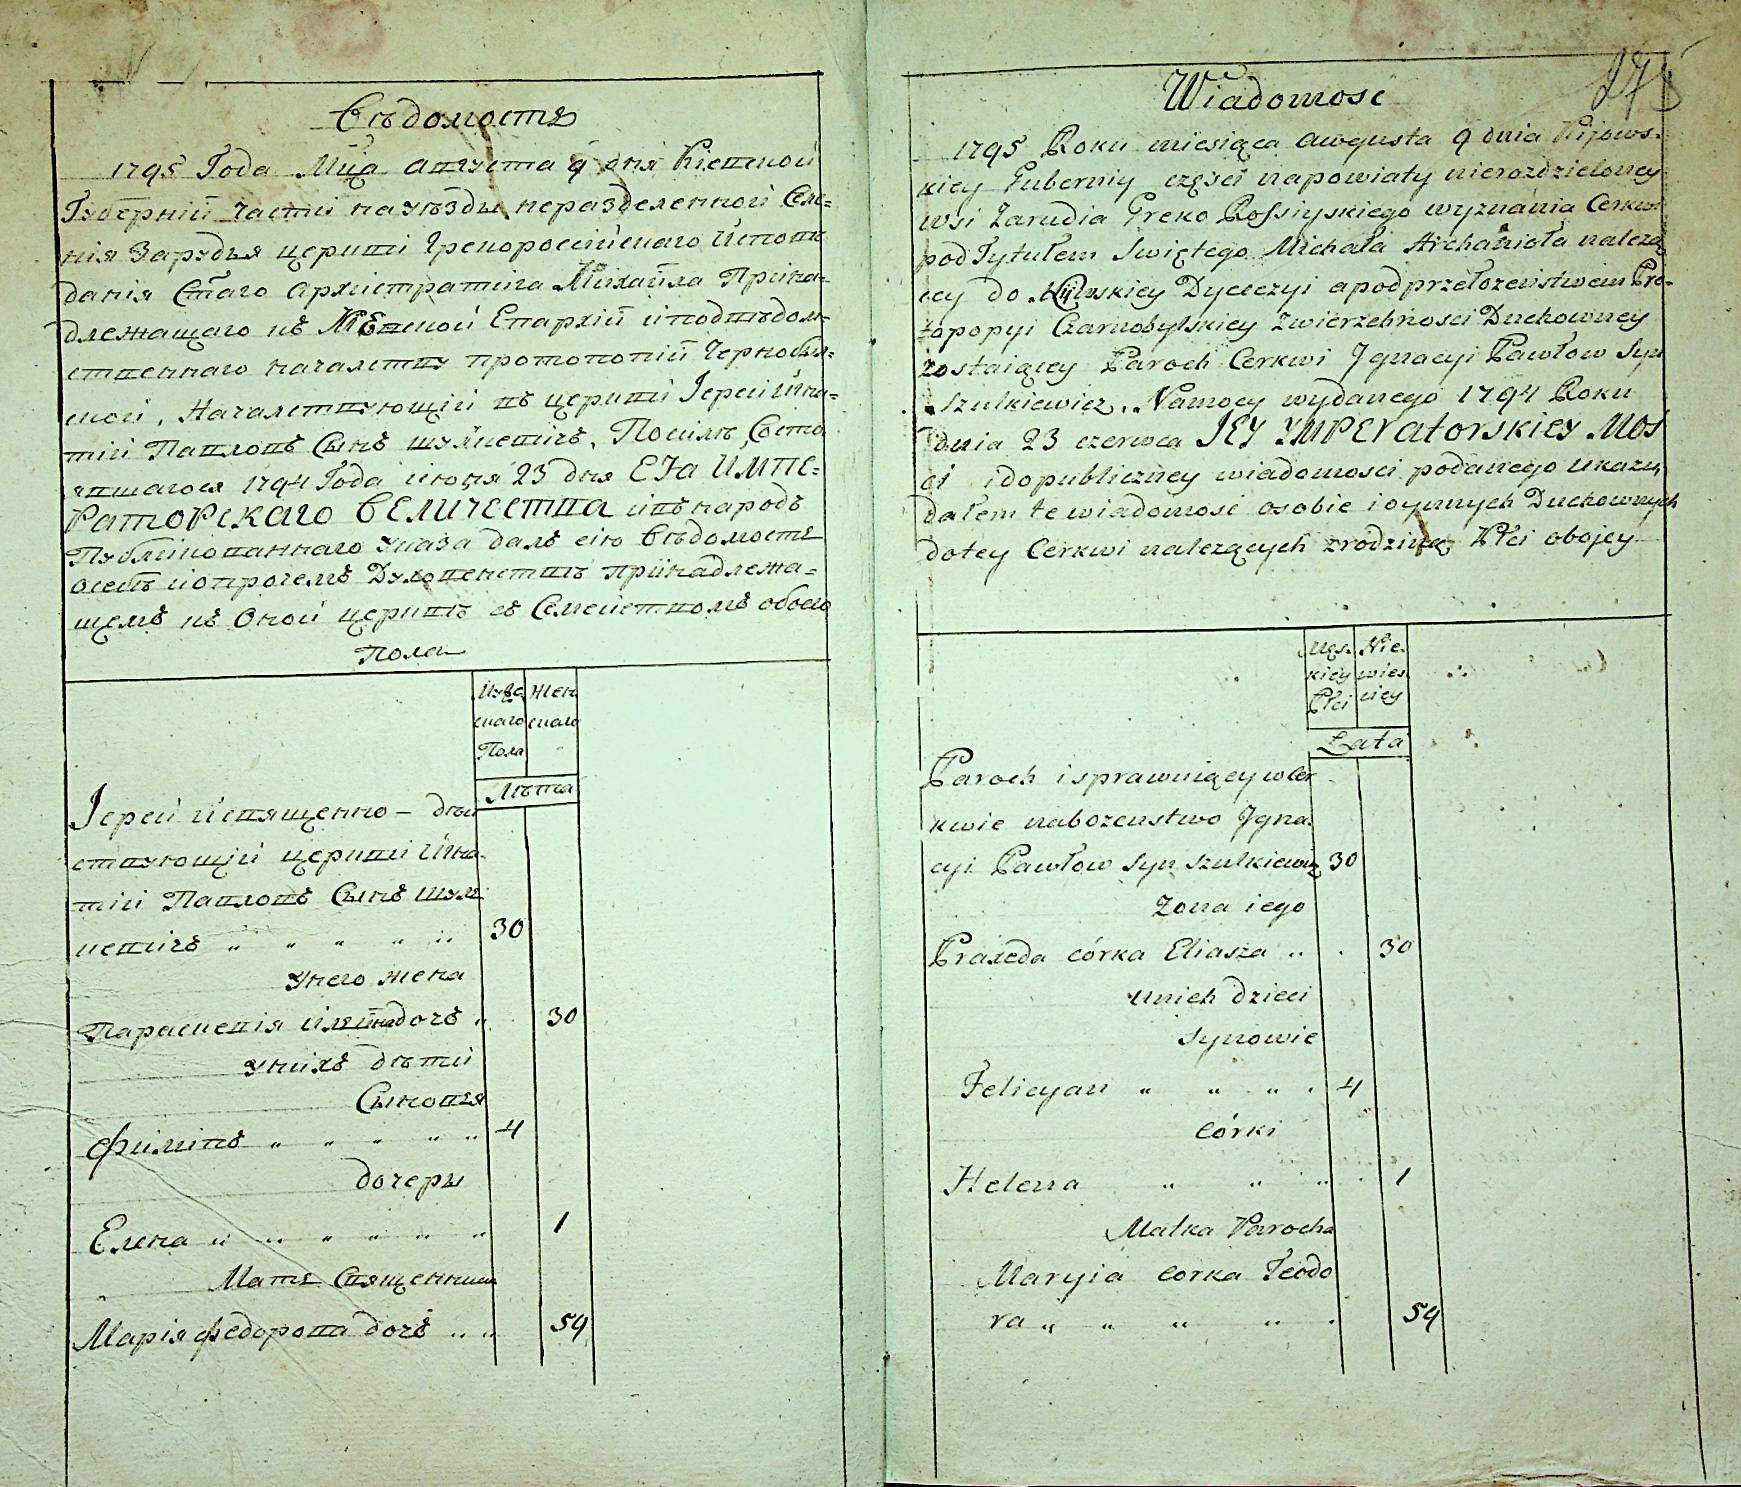 Вѣдомость
1795 Года Мца Августа 9 дня Кіевской
Губерніи части на уѣзды неразделенной Селе=
нія Зарудья церкви Грекороссійскаго Исповѣ
данія Стаго Архистратига Михаила Прина=
длежащаго къ Кіевской Епархіи и подвѣдом=
ственнаго началству протопопіи Чернобыл=
ской, Началствующій въ церкви Іерей Игна=
тій Павловъ Сынъ Шулкевичъ, По силѣ Состо
явшагося 1794 Года июня 23 дня ЕЯ ИМПЕ=
РАТОРСКАГО ВЕЛИЧЕСТВА и въ народъ
Публикованнаго Указа далъ сію Вѣдомость
о себѣ и о прочемъ Духовенствѣ принадлежа=
щемъ къ Оной церквѣ съ Семействомъ обоего
Пола
Мужс Жен
скаго скаго
Пола
Лѣта
Іерей и священно – дѣй
ствующій церкви Игна
тій Павловъ Сынъ Шул
кевичъ " " " " " 30
У него жена
Параскевія Ильина дочь " 30
У нихъ дѣти
Сыновья
Филипъ " " " " " 4
дочеры
Елена " " " " " " 1
Мать Священника
Марія федорова дочь " " 54
175
Wiadomosc
1795 Roku miesiąca Awgusta 9 dnia Kijows-
kiey Guberniy częsci napowiaty nierozdzieloney
wsi Zarudia Greko Rossiyskiego wyznania Cerkwi
pod Tytułem Swiętego Michała Archanioła należą
cey do Kijowskiey Dyecezyi a podprzełożeństwem Pro-
topopyi Czarnobylskiey Zwierzchnosci Duchowney
zostaiącey Paroch Cerkwi Jgnacyi Pawłow Syn
Szulkiewicz, Namocy wydanego 1794 Roku
dnia 23 czerwca JEY YMPEratorskiey Mos
ci i dopubliczney wiadomosci podanego ukazu,
dałem te wiadomosc osobie i oynnych Duchownych
dotey Cerkwi należących zrodziną Płci obojey
Męs- Nie-
kiey wies
Płci ciey
Lata
Paroch i sprawuiący w Cer
kwie nabozenstwo Jgna-
cyi Pawłow Syn Szulkiewicz 30
Zona iego
Praxeda córka Eliasza " . 30
unich dzieci
Synowie
Felicyan " " " . 4
córki
Helena " " " . 1
Matka Parocha
Maryia corka Teodo
ra " " " " . 54